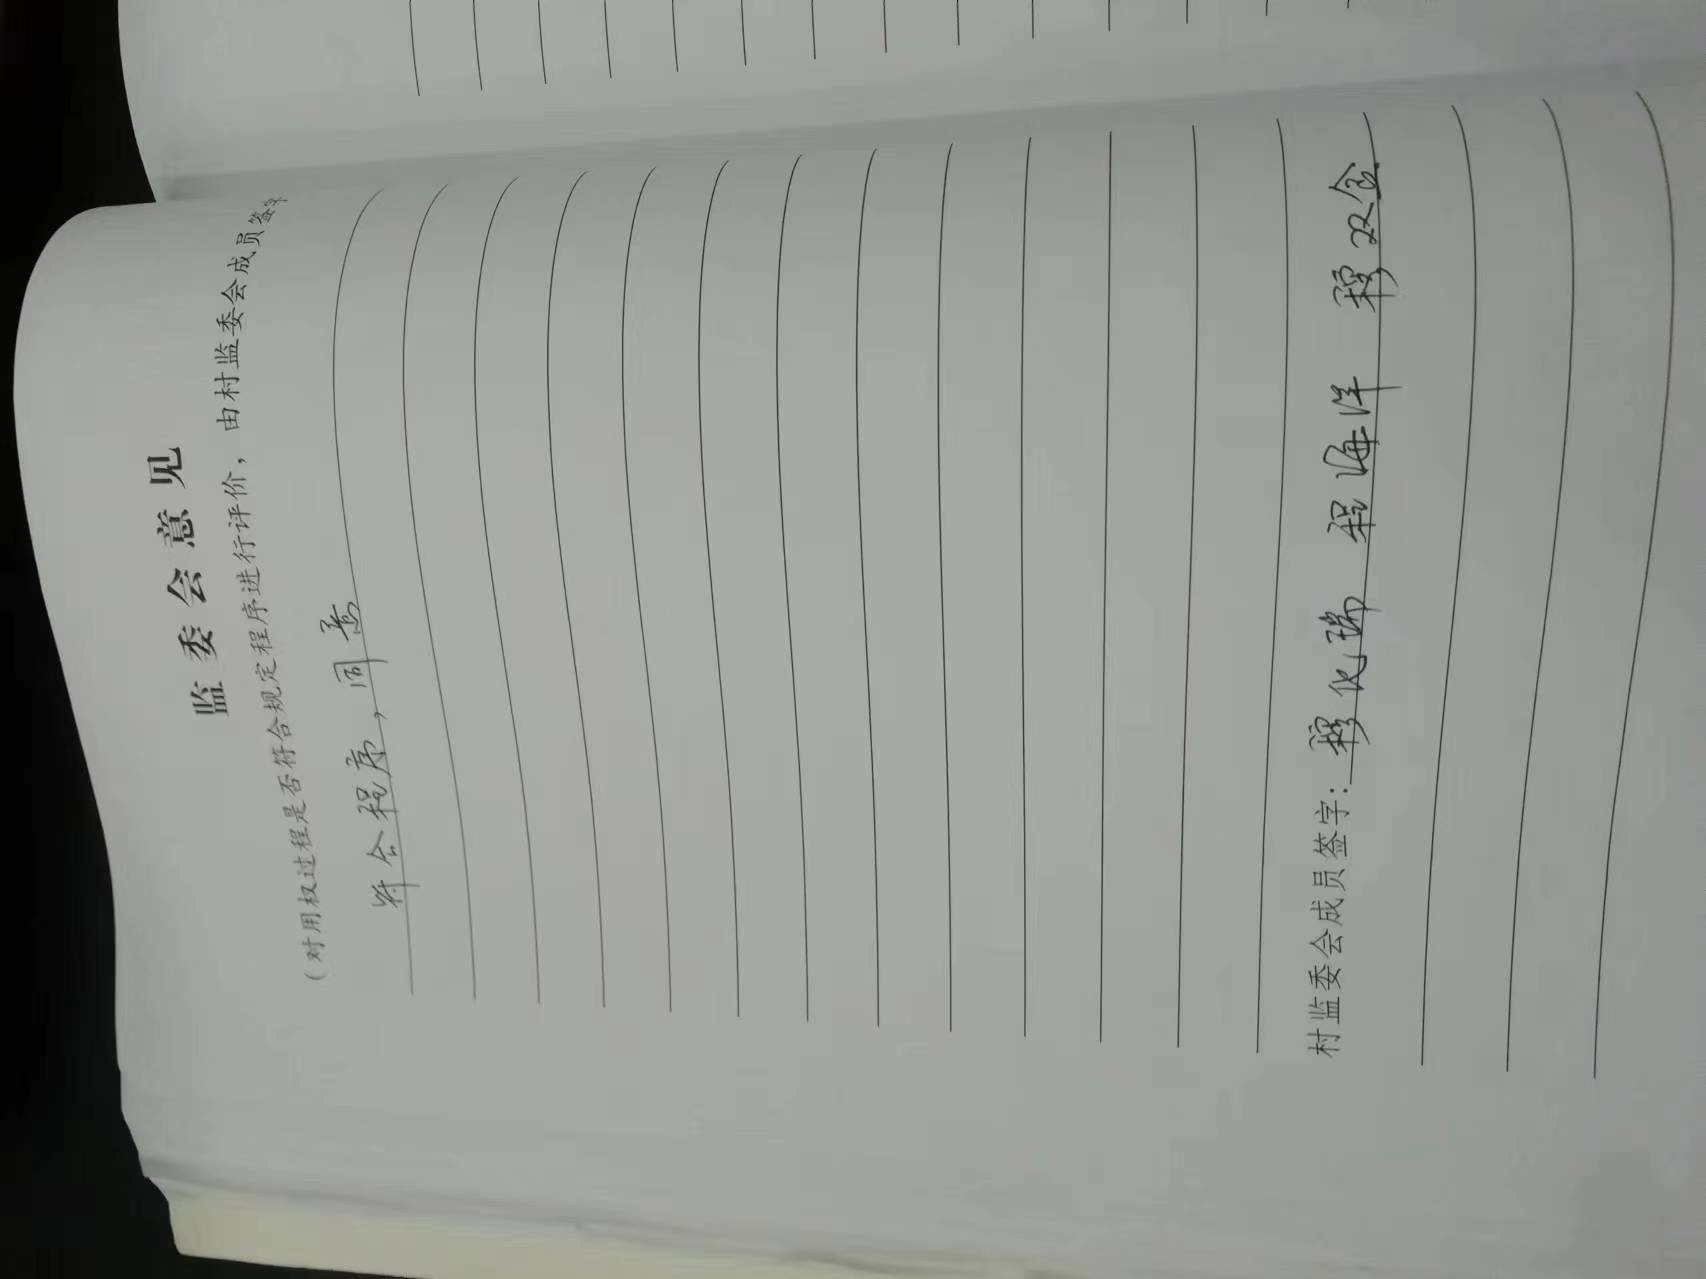 监委会意见
（对用权过程是否符合规定程序进行评价，由村监委会成员签字
符合程序，同意
村监委会成员签字：穆化瑞 程海洋 穆双全